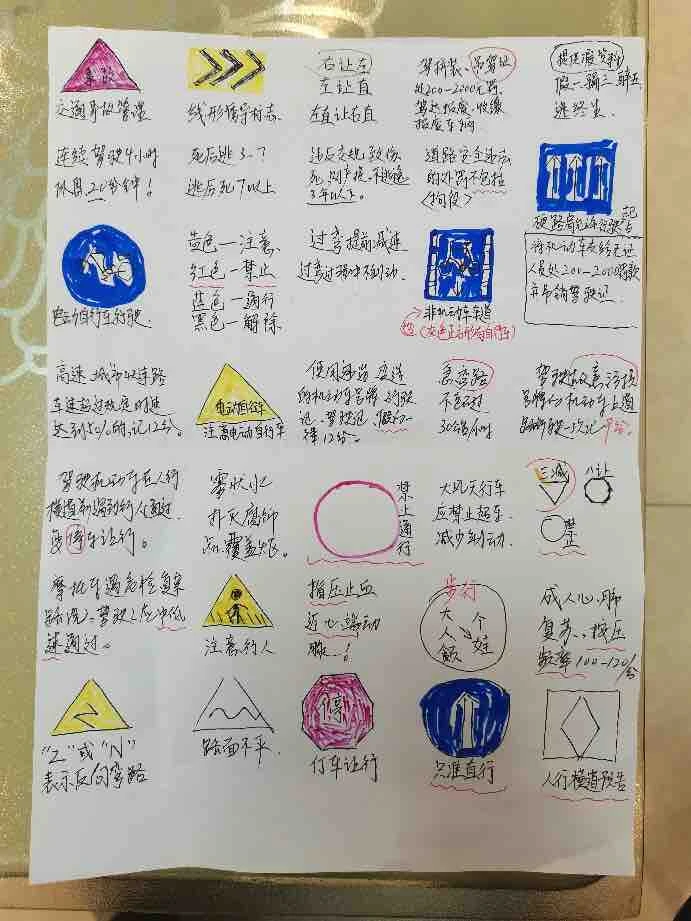 事故
交通事故管理
线形诱导标志
右让左
左让直
左直让右直
驾拼装、吊驾证
处200-2000元罚
驾达报废、收缴
报废车辆
提供假资料
假一骗三醉五
逃终生
连续驾驶4小时
休息20分钟!
死后逃3-7
逃后死7以上
违反交规致伤
死,判1年,不逃逸
3年以下。
道路安全违法
的处罚不包括
<拘役>
电动自行车行驶
黄色一注意
红色一禁止
蓝色一通行
黑色一解除
过弯提前减速
过弯过程中不制动
非机动车车道
(蓝色正方形有自行车)
将机动车交给无证
人员处200-2000罚款
并吊销驾驶证
高速、城市快速路
车速超过规定时速
达到50%的,记12分。
电动自行车
注意电动自行车
使用
的机动车号牌、行驶
证、驾驶证,
12分。
急弯路
不超过
30
驾驶故意污损
号牌机动车上道
路行驶一次记9分。
驾驶机动车在人行
横道前遇到行人通过
要停车让行。
雾状水
扑灭腐蚀
品,覆盖火焰。
禁止通行
大风天行车
应禁止超车
减少制动。
三减
八让
禁止
摩托车遇
路况,驾驶人应冲低
速通过。
注意行人
指压止血
近心端动
脉!
步行
大
人
个
娃
成人心肺
复苏、按压
频率100-120/分
"Z"或"N"
表示反向弯路
路面不平
停
停车让行
只准直行
人行横道预告